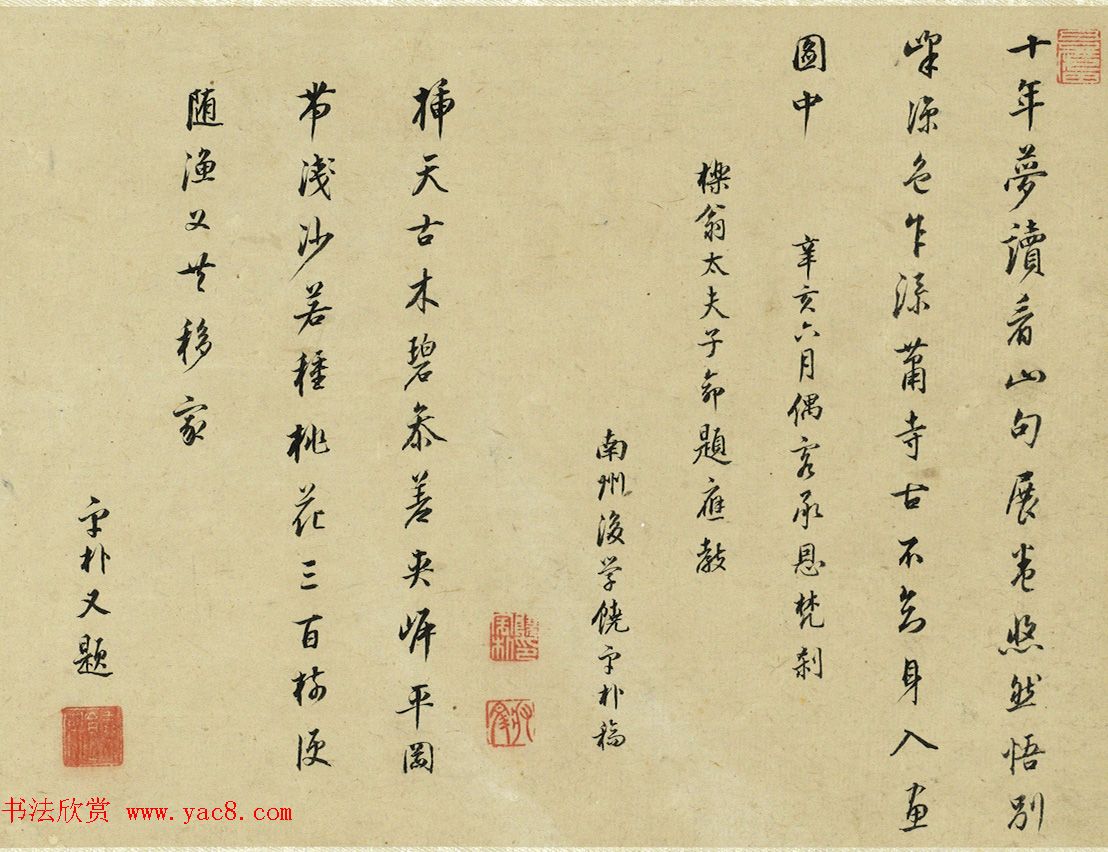 十年夢讀看山句展卷悠然悟別
峰涼色乍蕭寺古不知身入画
圖中 辛亥六月偶客承恩梵刹
櫟翁太夫子命題應教
南州後学饒宇朴稿
插天古木碧參差夾岸平岡
帶淺沙若種桃花三百樹便
随漁父共移家
宇朴又題
书法欣赏 www.yac8.com